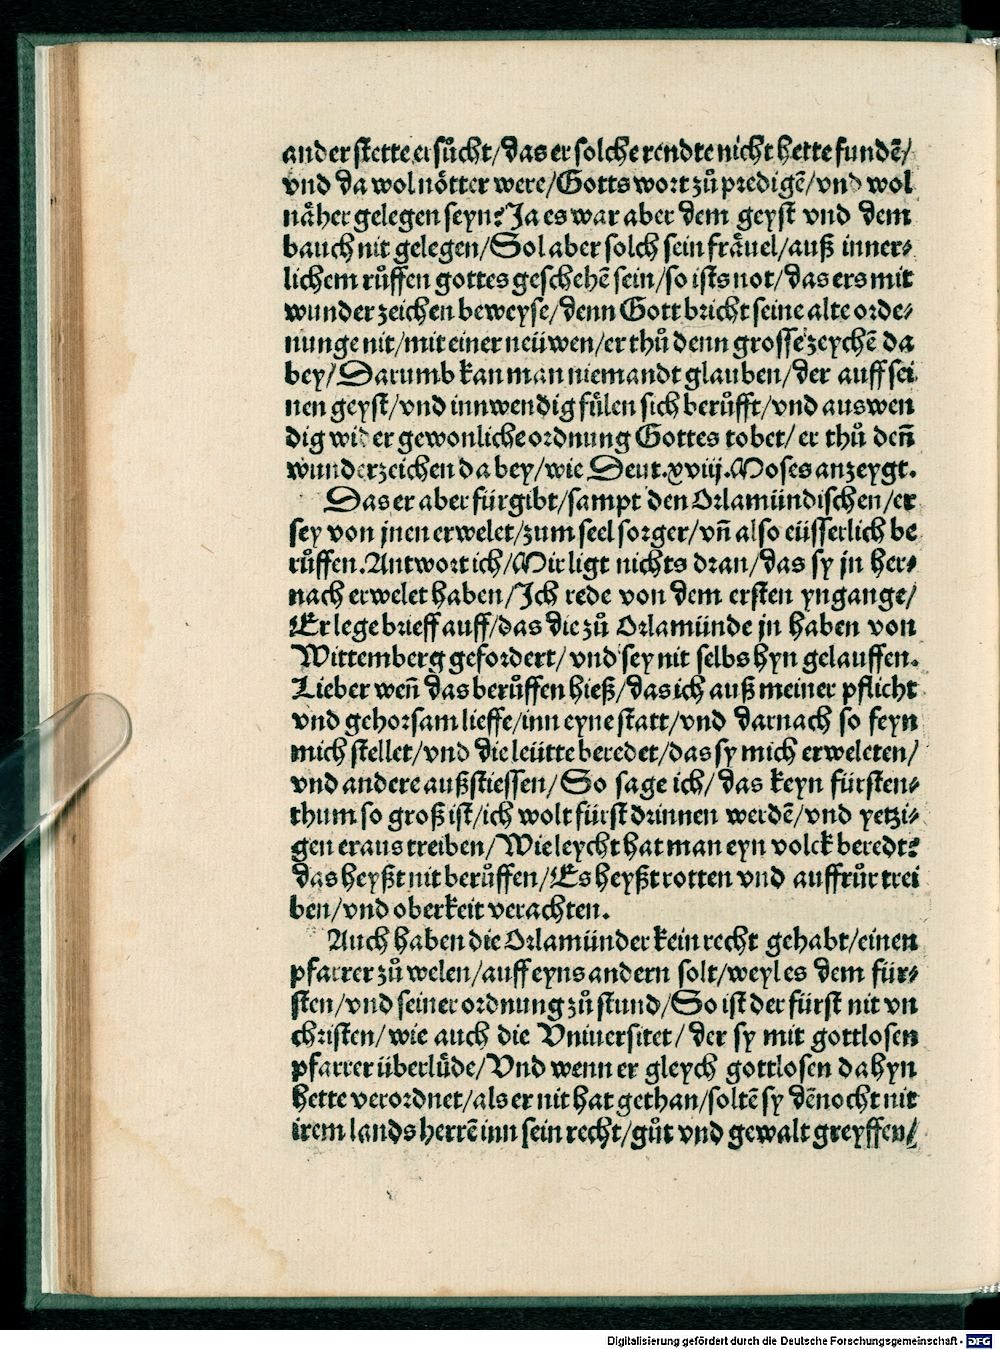 ander stette ersůcht/das er solche rendte nicht hette fundē/
vnd da wol nötter were/Gotts wort zů predigē/vnd wol
näher gelegen seyn? Ja es war aber dem geyst vnd dem
bauch nit gelegen/Sol aber solch sein fräuel/auß inner⸗
lichem růffen gottes geschehē sein/so ists not/das ers mit
wunder zeichen beweyse/denn Gott bricht seine alte orde⸗
nunge nit/mit einer neüwen/er thů denn grosse zeychē da
bey/Darumb kan man niemandt glauben/der auff sei
nen geyst/vnd innwendig fülen sich berůfft/vnd auswen
dig wider gewonliche ordnung Gottes tobet/er thů deñ
wunderzeichen da bey/wie Deut.xviij.Moses anzeygt.
Das er aber fürgibt/sampt den Orlamündischen/er
sey von jnen erwelet/zum seelsorger/vñ also eüsserlich be
růffen. Antwort ich/Mir ligt nichts dran/das sy jn her⸗
nach erwelet haben/Ich rede von dem ersten yngange/
Er lege brieff auff/das die zů Orlamünde jn haben von
Wittemberg gefordert/vnd sey nit selbs hyn gelauffen.
Lieber weñ das berůffen hieß/das ich auß meiner pflicht
vnd gehorsam lieffe/inn eyne statt/vnd darnach so feyn
mich stellet/vnd die leütte beredet/das sy mich erweleten/
vnd andere außstiessen/So sage ich/das keyn fürsten⸗
thum so groß ist/ich wolt fürst drinnen werdē/vnd yetzi⸗
gen eraus treiben/Wie leycht hat man eyn volck beredt?
das heyßt nit berůffen/Es heyßt rotten vnd auffrůr trei
ben/vnd oberkeit verachten.
Auch haben die Orlamünder kein recht gehabt/einen
pfarrer zů welen/auff eyns andern solt/weyl es dem für⸗
sten/vnd seiner ordnung zů stund/So ist der fürst nit vn
christen/wie auch die Vniuersitet/der sy mit gottlosen
pfarrer überlüde/Vnd wenn er gleych gottlosen dahyn
hette verordnet/als er nit hat gethan/soltē sy dēnocht nit
irem lands herrē inn sein recht/gůt vnd gewalt greyffen/
Digitalisierung gefördert durch die Deutsche Forschungsgemeinschaft - DFG